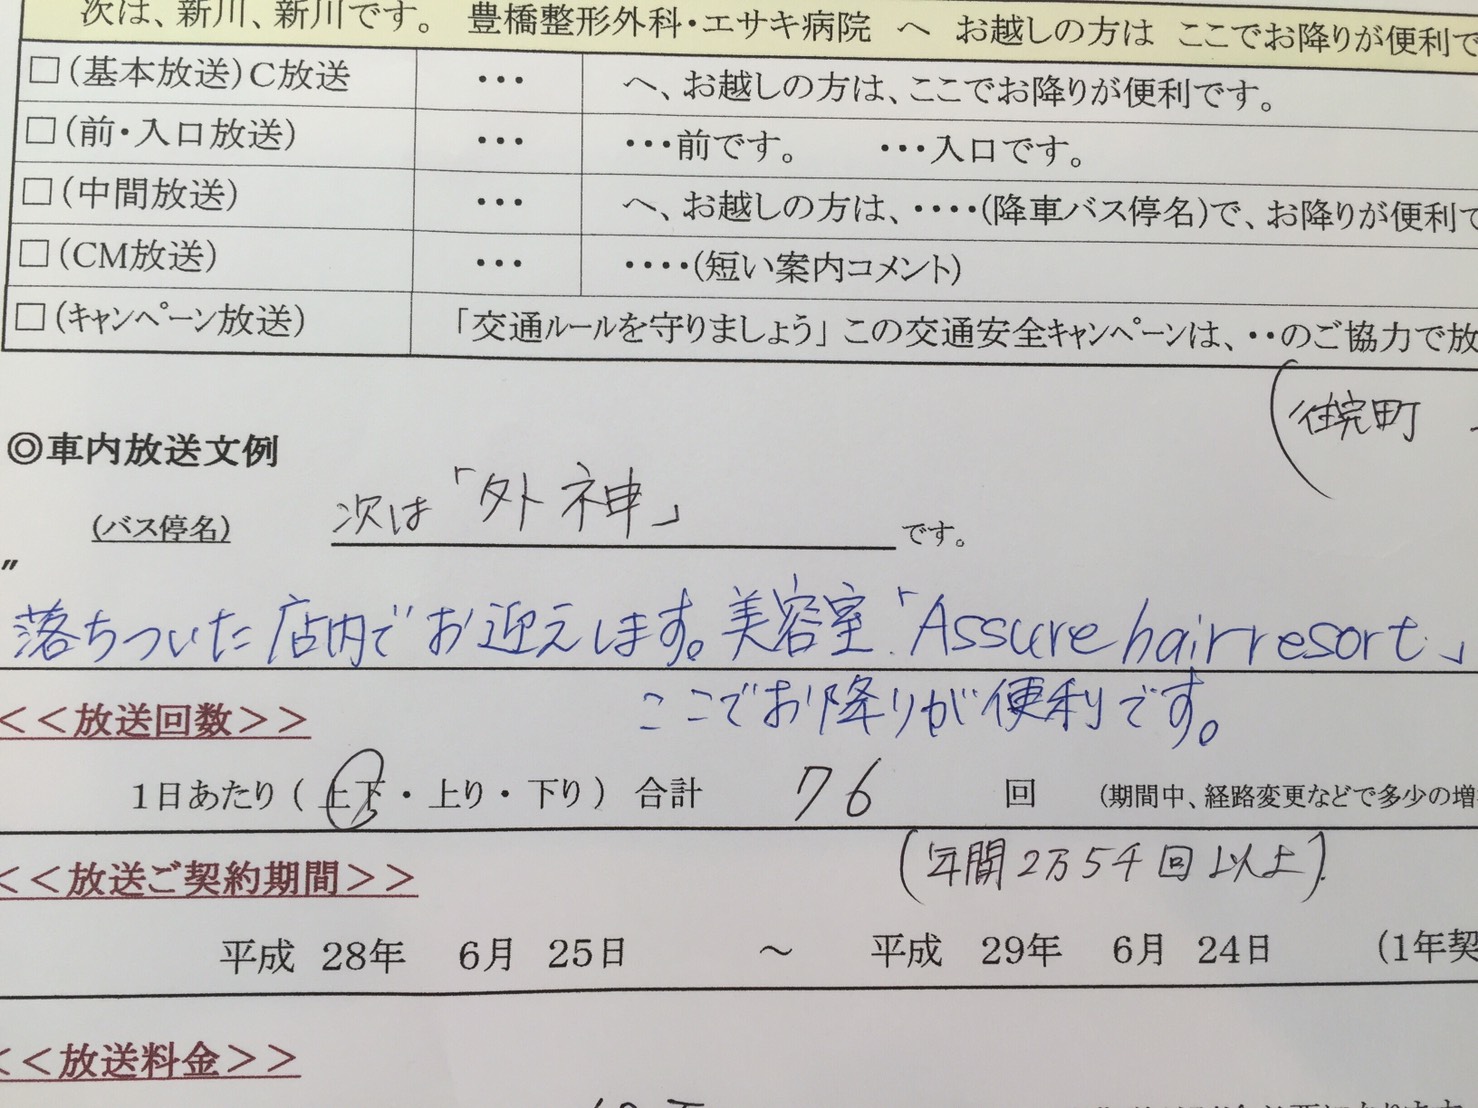 次は、新川、新川です。 豊橋整形外科・エサキ病院 へ お越しの方は ここでお降りが便利で
□(基本放送)C放送 ・・・ へ、お越しの方は、ここでお降りが便利です。
□(前・入口放送) ・・・ ・・・前です。 ・・・入口です。
□(中間放送) ・・・ へ、お越しの方は、・・・・(降車バス停名)で、お降りが便利で
□(CM放送) ・・・ ・・・・(短い案内コメント)
□(キャンペーン放送) 「交通ルールを守りましょう」この交通安全キャンペーンは、・・のご協力で放
◎車内放送文例
(バス停名) 次は「外神」 です。
〃
落ちついた店内でお迎えします。美容室「Assure hair resort」
ここでお降りが便利です。
<<放送回数>>
1日あたり ( 上下・上り・下り ) 合計 76 回 (期間中、経路変更などで多少の増
(年間2万5千回以上)
<<放送ご契約期間>>
平成 28年 6月 25日 ～ 平成 29年 6月 24日 (1年契
<<放送料金>>